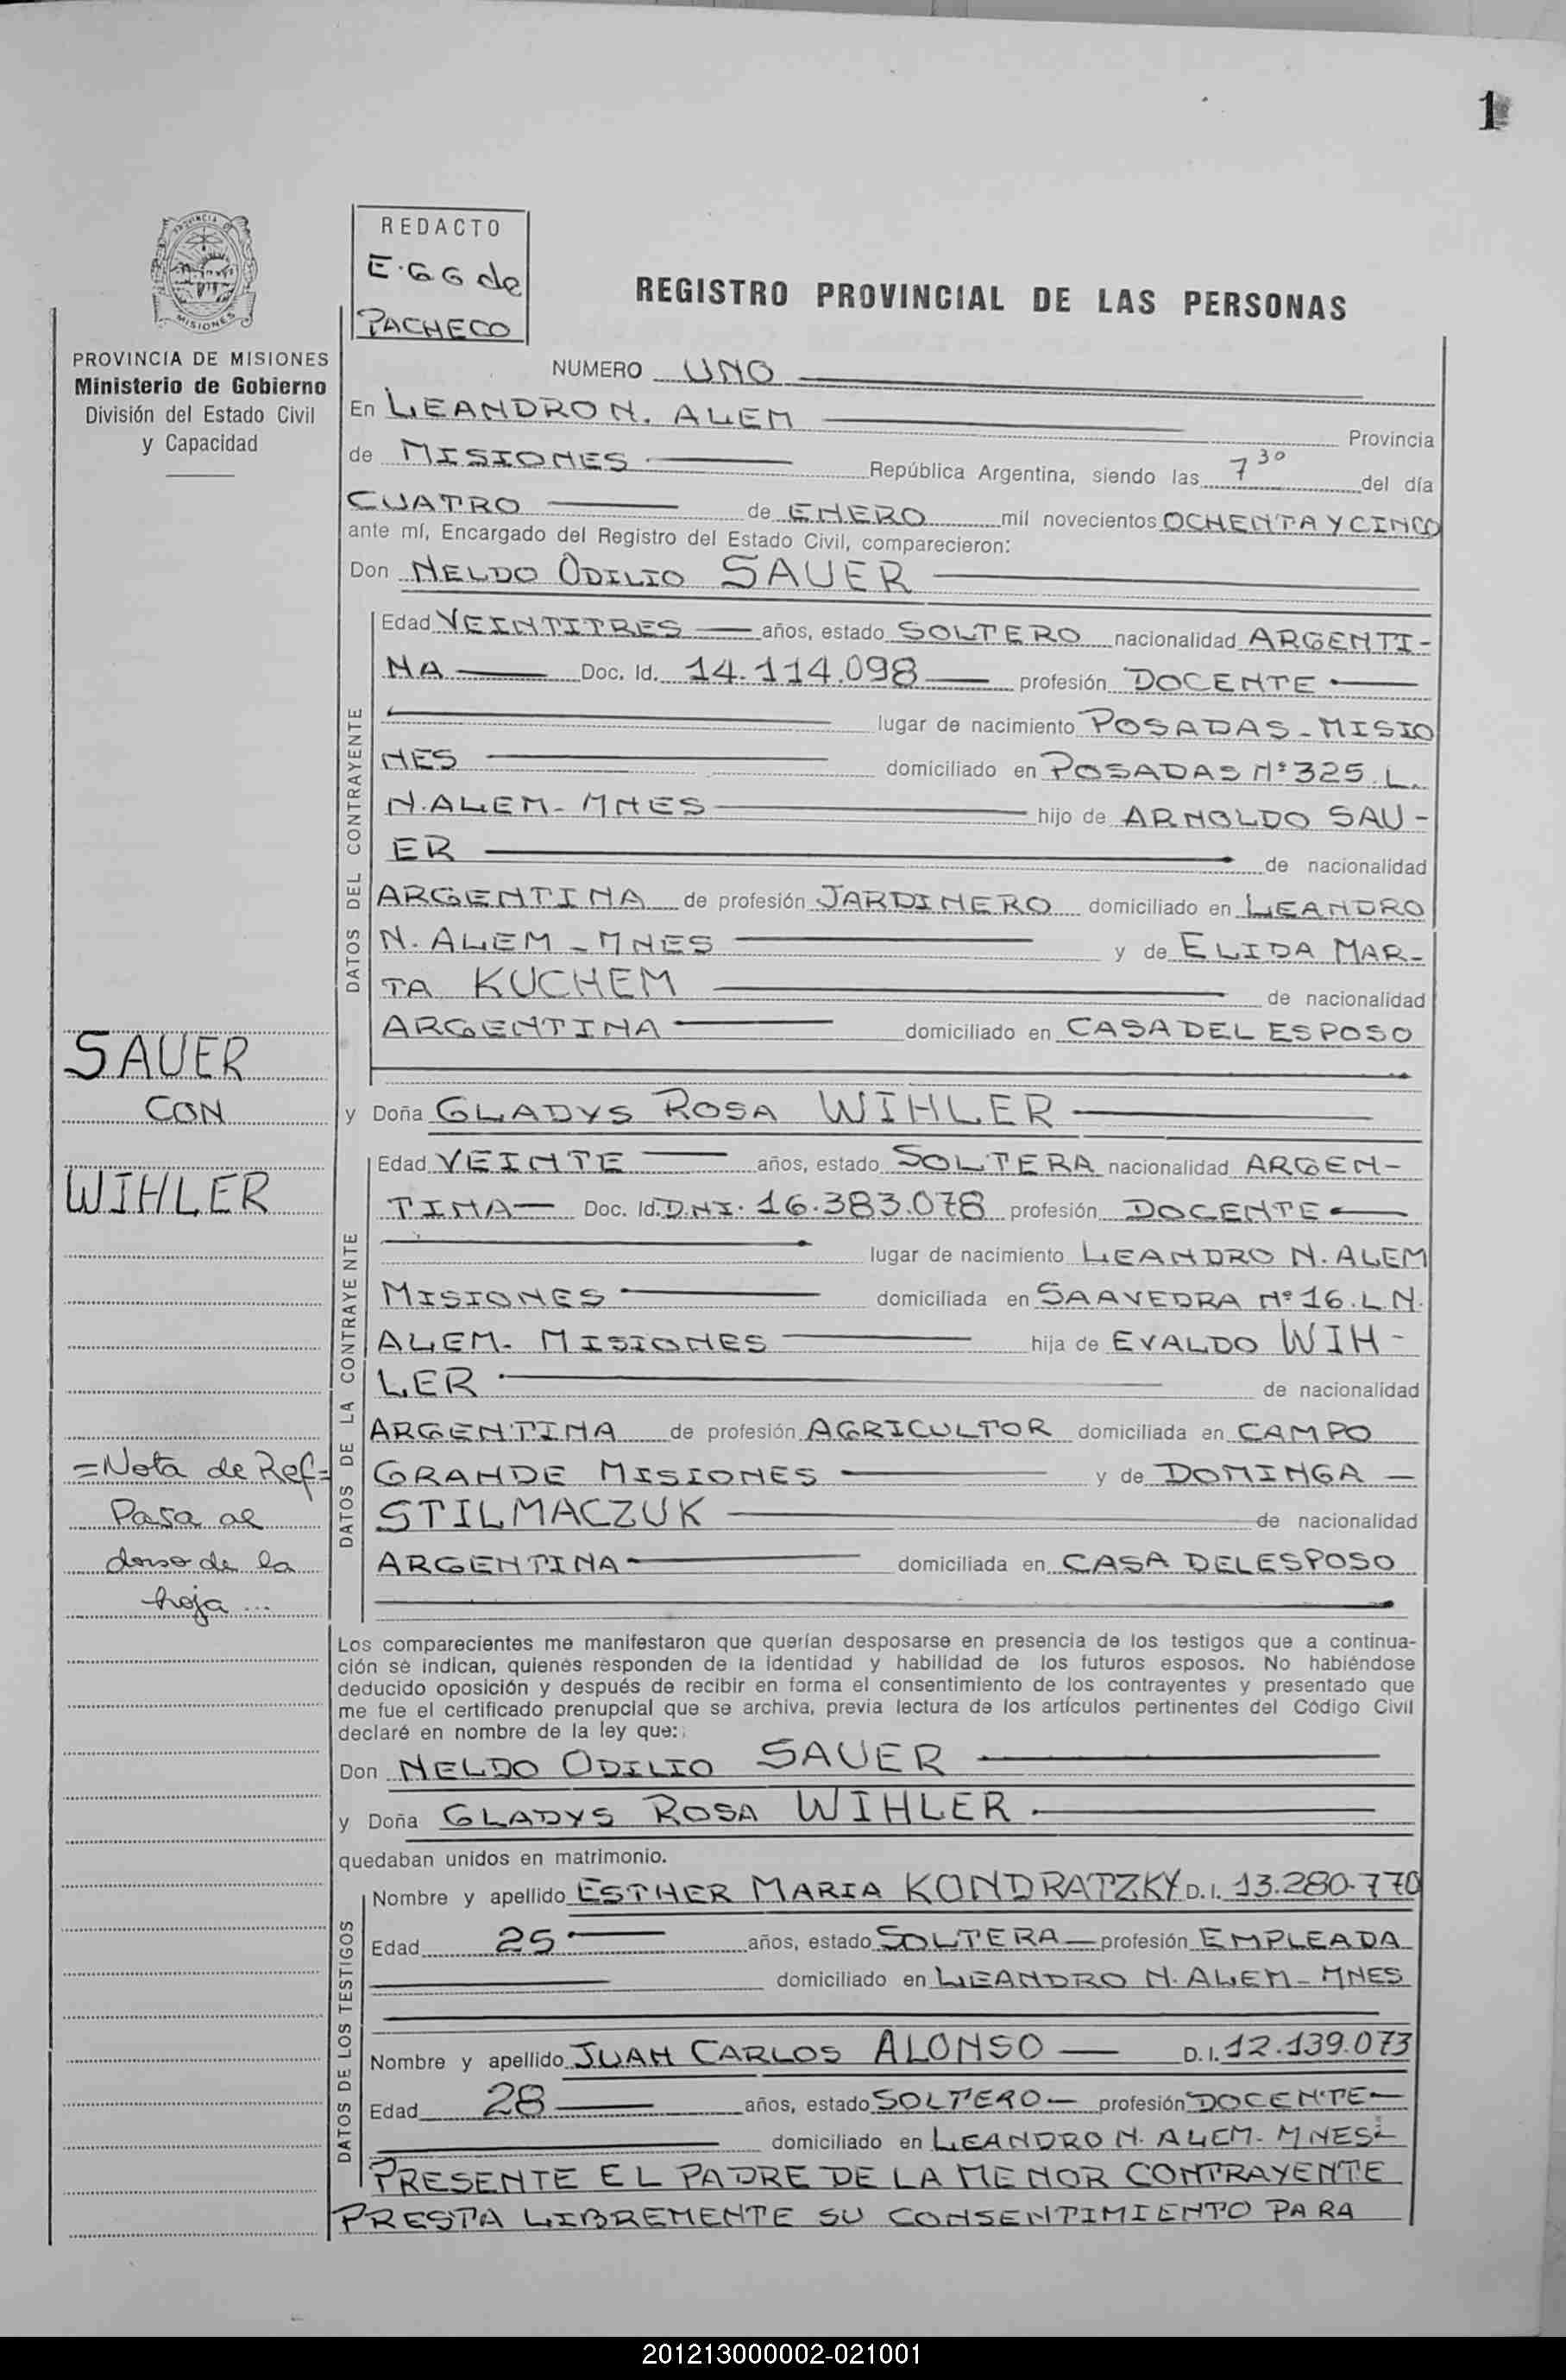 1
PROVINCIA DE
MISIONES
REDACTO
E. G G de
PACHECO
REGISTRO PROVINCIAL DE LAS PERSONAS
PROVINCIA DE MISIONES
Ministerio de Gobierno
División del Estado Civil
y Capacidad
NUMERO UNO
En LEANDRO N. ALEM Provincia
de MISIONES República Argentina, siendo las 7 30 del día
CUATRO de ENERO mil novecientos OCHENTA Y CINCO
ante mí, Encargado del Registro del Estado Civil, comparecieron:
Don NELDO ODILIO SAUER
DATOS DEL CONTRAYENTE
Edad VEINTITRES años, estado SOLTERO nacionalidad ARGENTI-
NA Doc. Id. 14.114.098 profesión DOCENTE
lugar de nacimiento POSADAS - MISIO
NES domiciliado en POSADAS Nº 325. L.
N. ALEM - MNES hijo de ARNOLDO SAU-
ER de nacionalidad
ARGENTINA de profesión JARDINERO domiciliado en LEANDRO
N. ALEM - MNES y de ELIDA MAR-
TA KUCHEM de nacionalidad
ARGENTINA domiciliado en CASA DEL ESPOSO
SAUER
CON
WIHLER
y Doña GLADYS ROSA WIHLER
DATOS DE LA CONTRAYENTE
Edad VEINTE años, estado SOLTERA nacionalidad ARGEN-
TINA Doc. Id. D.N.I. 16.383.078 profesión DOCENTE
lugar de nacimiento LEANDRO N. ALEM
MISIONES domiciliada en SAAVEDRA Nº 16. L.N.
ALEM. MISIONES hija de EVALDO WIH-
LER de nacionalidad
ARGENTINA de profesión AGRICULTOR domiciliada en CAMPO
GRANDE MISIONES y de DOMINGA
STILMACZUK de nacionalidad
ARGENTINA domiciliada en CASA DEL ESPOSO
=Nota de Ref=
Pasa al
dorso de la
hoja ...
Los comparecientes me manifestaron que querían desposarse en presencia de los testigos que a continua-
ción se indican, quienes responden de la identidad y habilidad de los futuros esposos. No habiéndose
deducido oposición y después de recibir en forma el consentimiento de los contrayentes y presentado que
me fue el certificado prenupcial que se archiva, previa lectura de los artículos pertinentes del Código Civil
declaré en nombre de la ley que:
Don NELDO ODILIO SAUER
y Doña GLADYS ROSA WIHLER
quedaban unidos en matrimonio.
DATOS DE LOS TESTIGOS
Nombre y apellido ESTHER MARIA KONDRATZKY D.I. 13.280.770
Edad 25 años, estado SOLTERA profesión EMPLEADA
domiciliado en LEANDRO N. ALEM - MNES
Nombre y apellido JUAN CARLOS ALONSO D.I. 12.139.073
Edad 28 años, estado SOLTERO profesión DOCENTE
domiciliado en LEANDRO N. ALEM - MNES
PRESENTE EL PADRE DE LA MENOR CONTRAYENTE
PRESTA LIBREMENTE SU CONSENTIMIENTO PARA
201213000002-021001